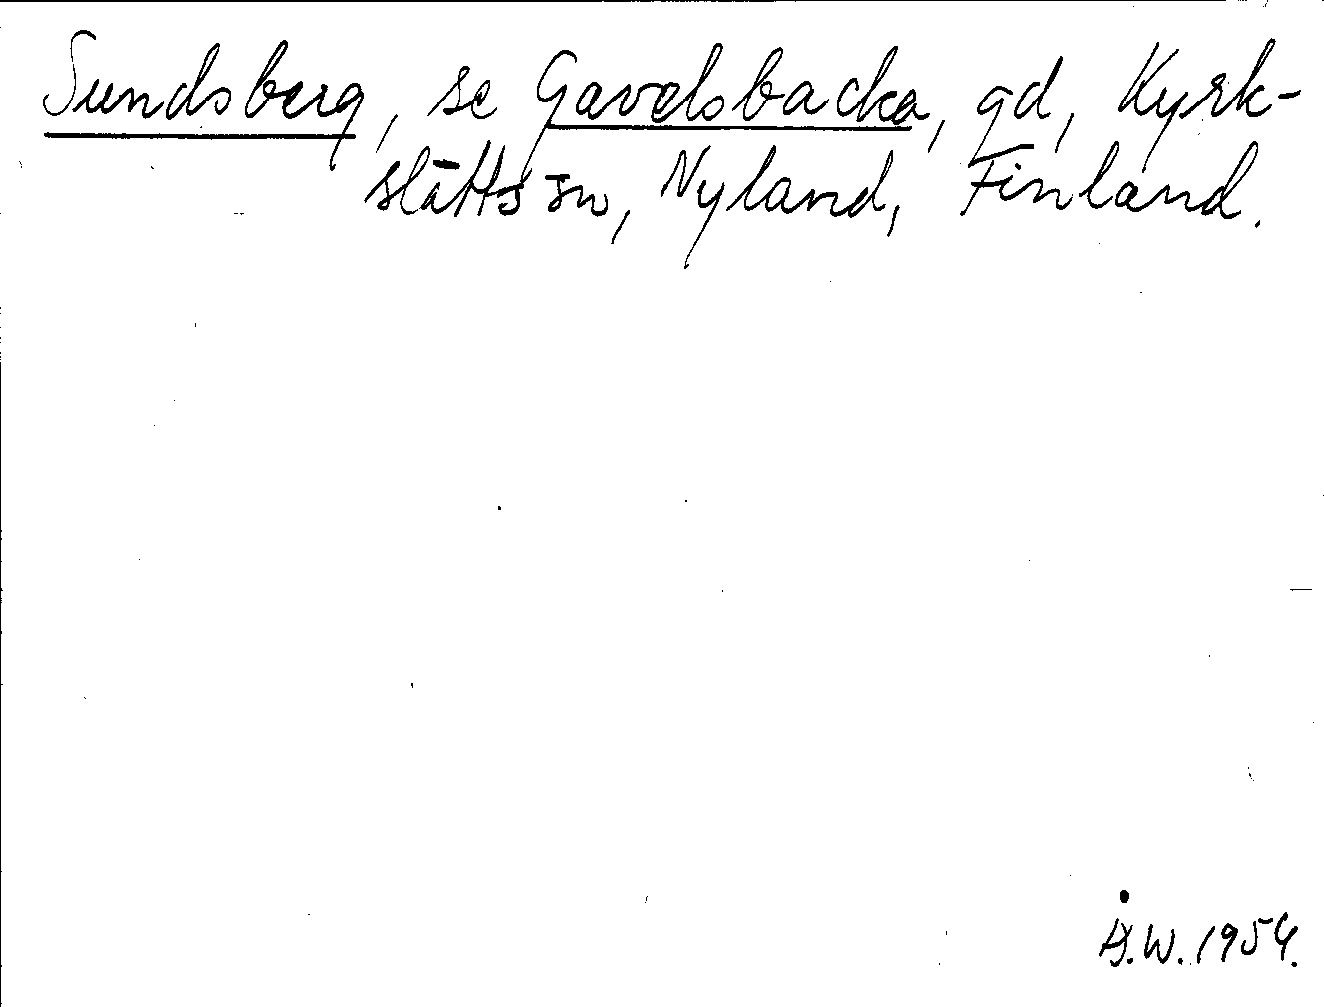 Sundsberg, se Gavelsbacka, gd, Kyrk-
slätts sn, Nyland, Finland.
Å.W. 1954.